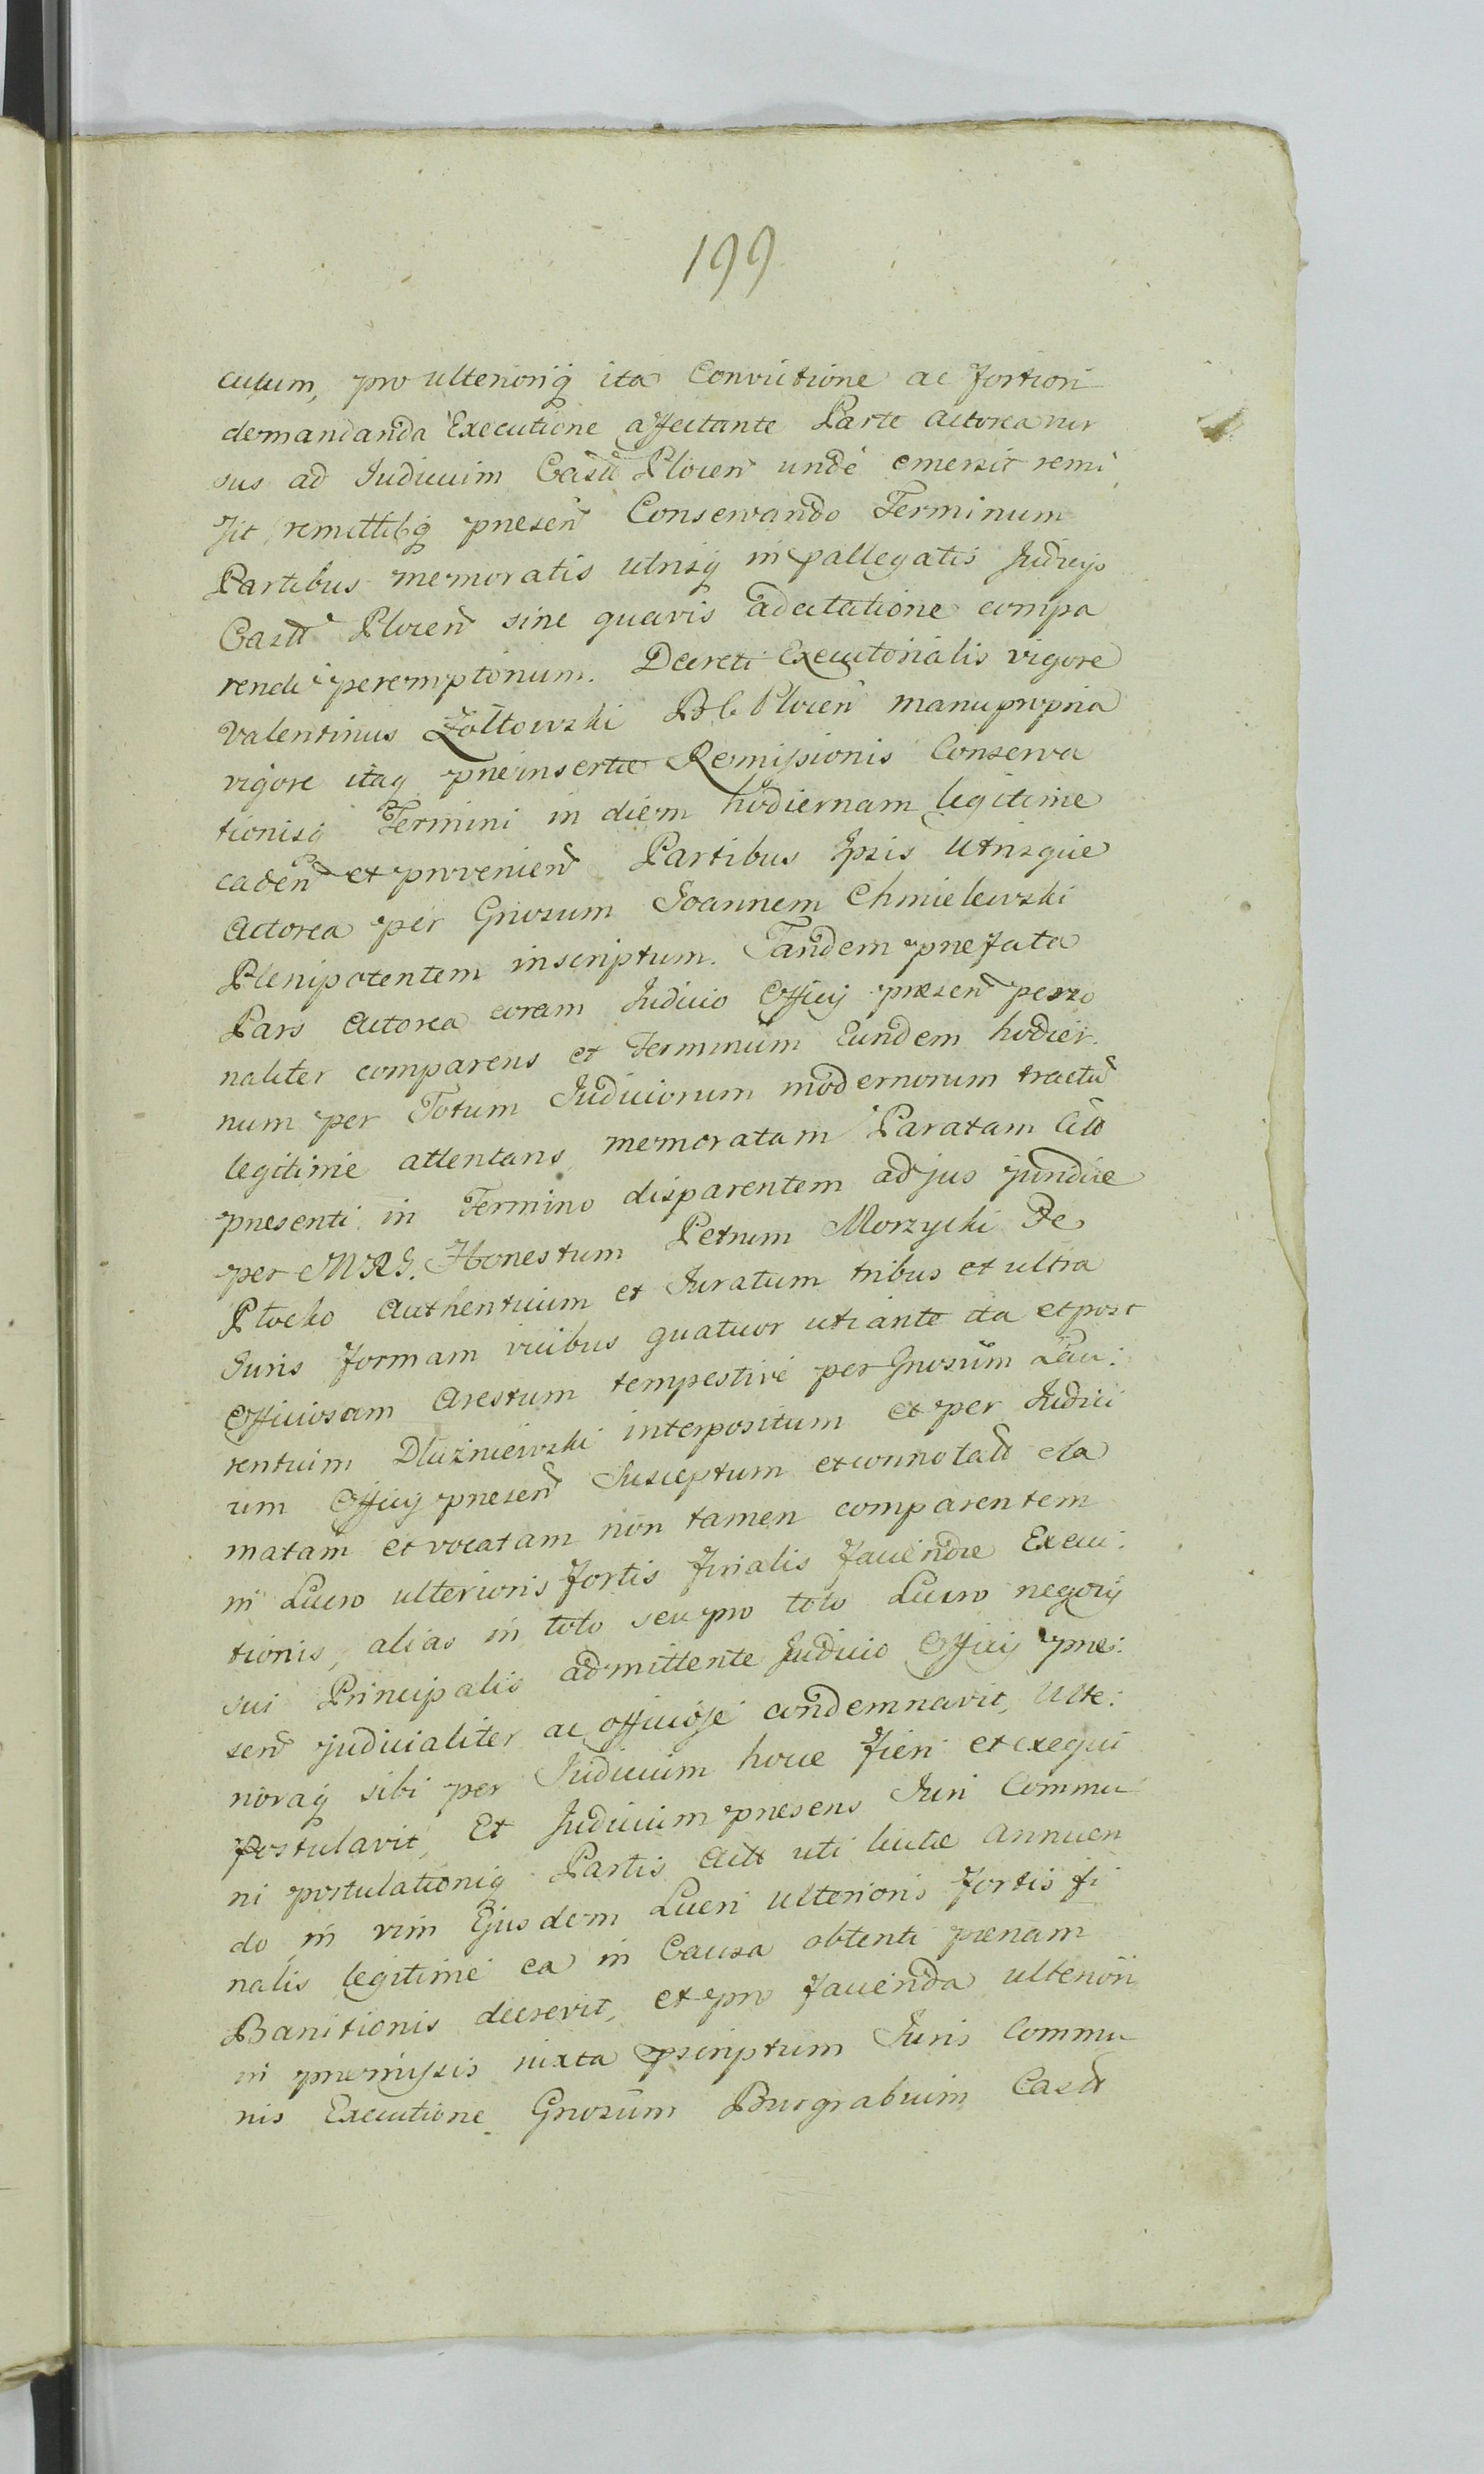 199
cutum, pro ulterioriq ita Convictione ac fortiori
demandanda Executione affectante Parte actorea rur
sus ad Judicium Castr Plocen unde emersit remi
sit remittitq presen Conservando Terminum
Partibus memoratis utrisq in pallegatis Judicijs
Castr Plocen sine quavis adcitatione compa
rendi peremptorium. Decreti Executorialis vigore
Valentinus Żółtowski B G Plocen manu propria
vigore itaq preinsertæ Remissionis Conserva
tionisq Termini in diem hodiernam legitime
caden et provenien Partibus Ipsis Utrisque
Actorea per Gnosum Joannem Chmielewski
Plenipotentem inscriptum. Tandem prefata
Pars Actorea coram Judicio Officij presen perso
naliter comparens et Terminum Eundem hodier
num per Totum Judiciorum modernorum tractum
legitime attentans memoratam Paratam Citt
presenti in Termino disparentem ad jus juridice
per MRG. Honestum Petrum Morzycki De
Płocko Authenticum et Juratum tribus et ultra
Juris formam vicibus quatuor uti ante ita et post
Officiosam Arestum tempestive per Gnosum Lau:
rentium Dłużniewski interpositum et per Judici
um Officij presen Susceptum et connotatt cla
matam et vocatam non tamen comparentem
in Lucro ulterioris fortis finalis faciendæ Execu:
tionis, alias in toto seu pro toto Lucro negotij
sui Principalis admittente Judicio Officij pre:
sen judicialiter ac officiose condemnavit, Ulte:
rioraq sibi per Judicium hocce fieri et exequi
postulavit, Et Judicium presens Juri Commu
ni postulationiq Partis Actt uti licitæ annuen
do in vim Ejusdem Lucri ulterioris fortis fi
nalis legitime ea in Causa obtenti pænam
Banitionis decrevit, et pro facienda ulteriori
in premissis iuxta pscriptum Juris Commu
nis Executione Gnosum Burgrabium Castr